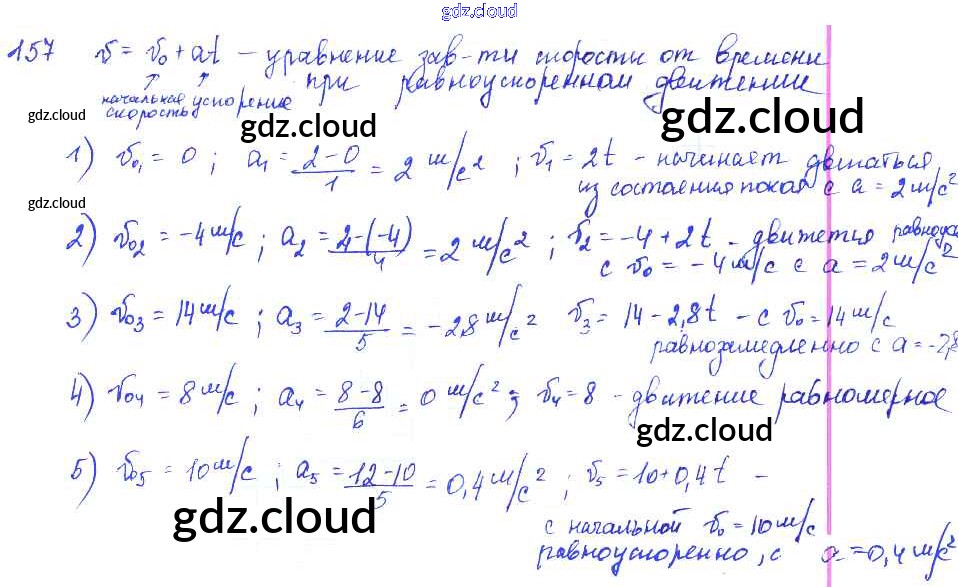 gdz.cloud
157 v = v₀ + at – уравнение зав-ти скорости от времени
при равноускоренном движении
начальная ускорение
скорость
gdz.cloud gdz.cloud gdz.cloud
1) v₀₁ = 0 ; a₁ = (2-0)/1 = 2 м/с² ; v₁ = 2t – начинает двигаться
из состояния покоя с a = 2 м/с²
gdz.cloud
2) v₀₂ = -4 м/с ; a₂ = (4-(-4))/4 = 2 м/с² ; v₂ = -4 + 2t – движется равноус
с v₀ = -4 м/с с a = 2 м/с²
3) v₀₃ = 14 м/с ; a₃ = (2-14)/5 = -2,8 м/с² v₃ = 14 - 2,8t – с v₀ = 14 м/с
равнозамедленно с a = -2,8
4) v₀₄ = 8 м/с ; a₄ = (8-8)/6 = 0 м/с² ; v₄ = 8 – движение равномерное
gdz.cloud
5) v₀₅ = 10 м/с ; a₅ = (12-10)/5 = 0,4 м/с² ; v₅ = 10 + 0,4t –
gdz.cloud
с начальной v₀ = 10 м/с
равноускоренно, с a = 0,4 м/с²